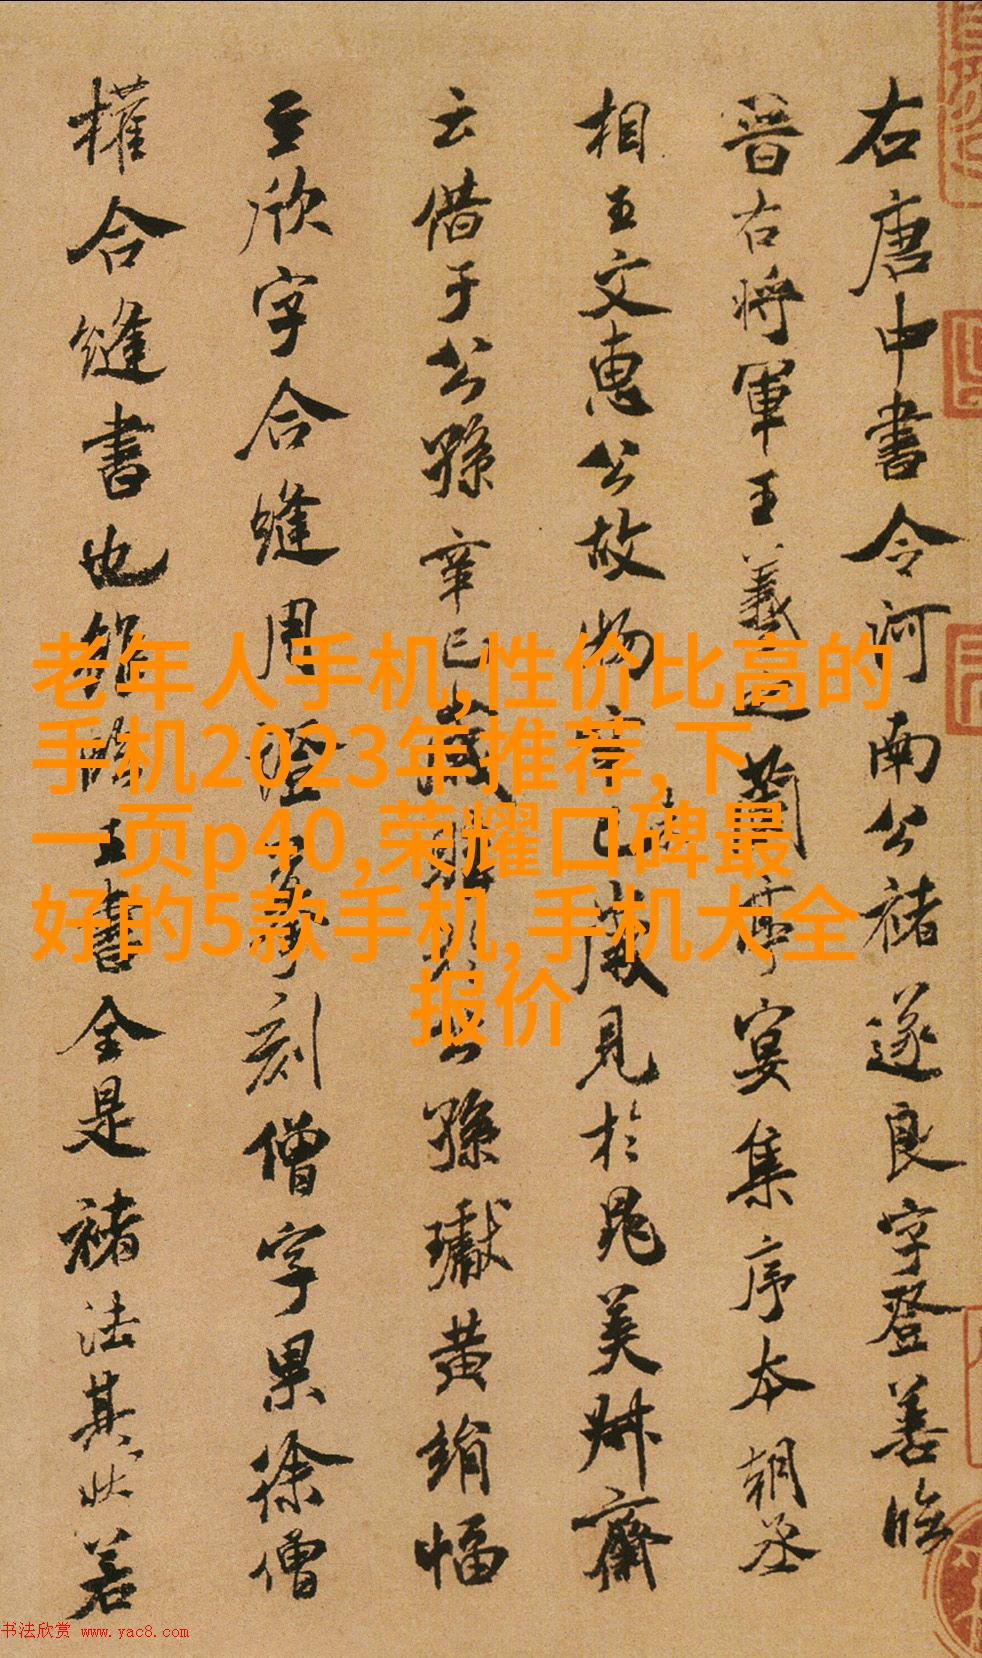 右唐中書令河南公褚遂良字登善臨
晉右將軍王羲之蘭亭宴集序本朝丞
相王文惠公故物辛巳歲見於晁美叔齋
云借于公孫辛巳歲購於公孫瓛黃絹幅
至欣字合縫用證摹刻僧字果徐僧
權合縫書也雖臨王書全是褚法其狀若
老年人手机,性价比高的
手机2023年推荐,下
一页p40,荣耀口碑最
好的5款手机,手机大全
报价
书法欣赏 www.yac8.com